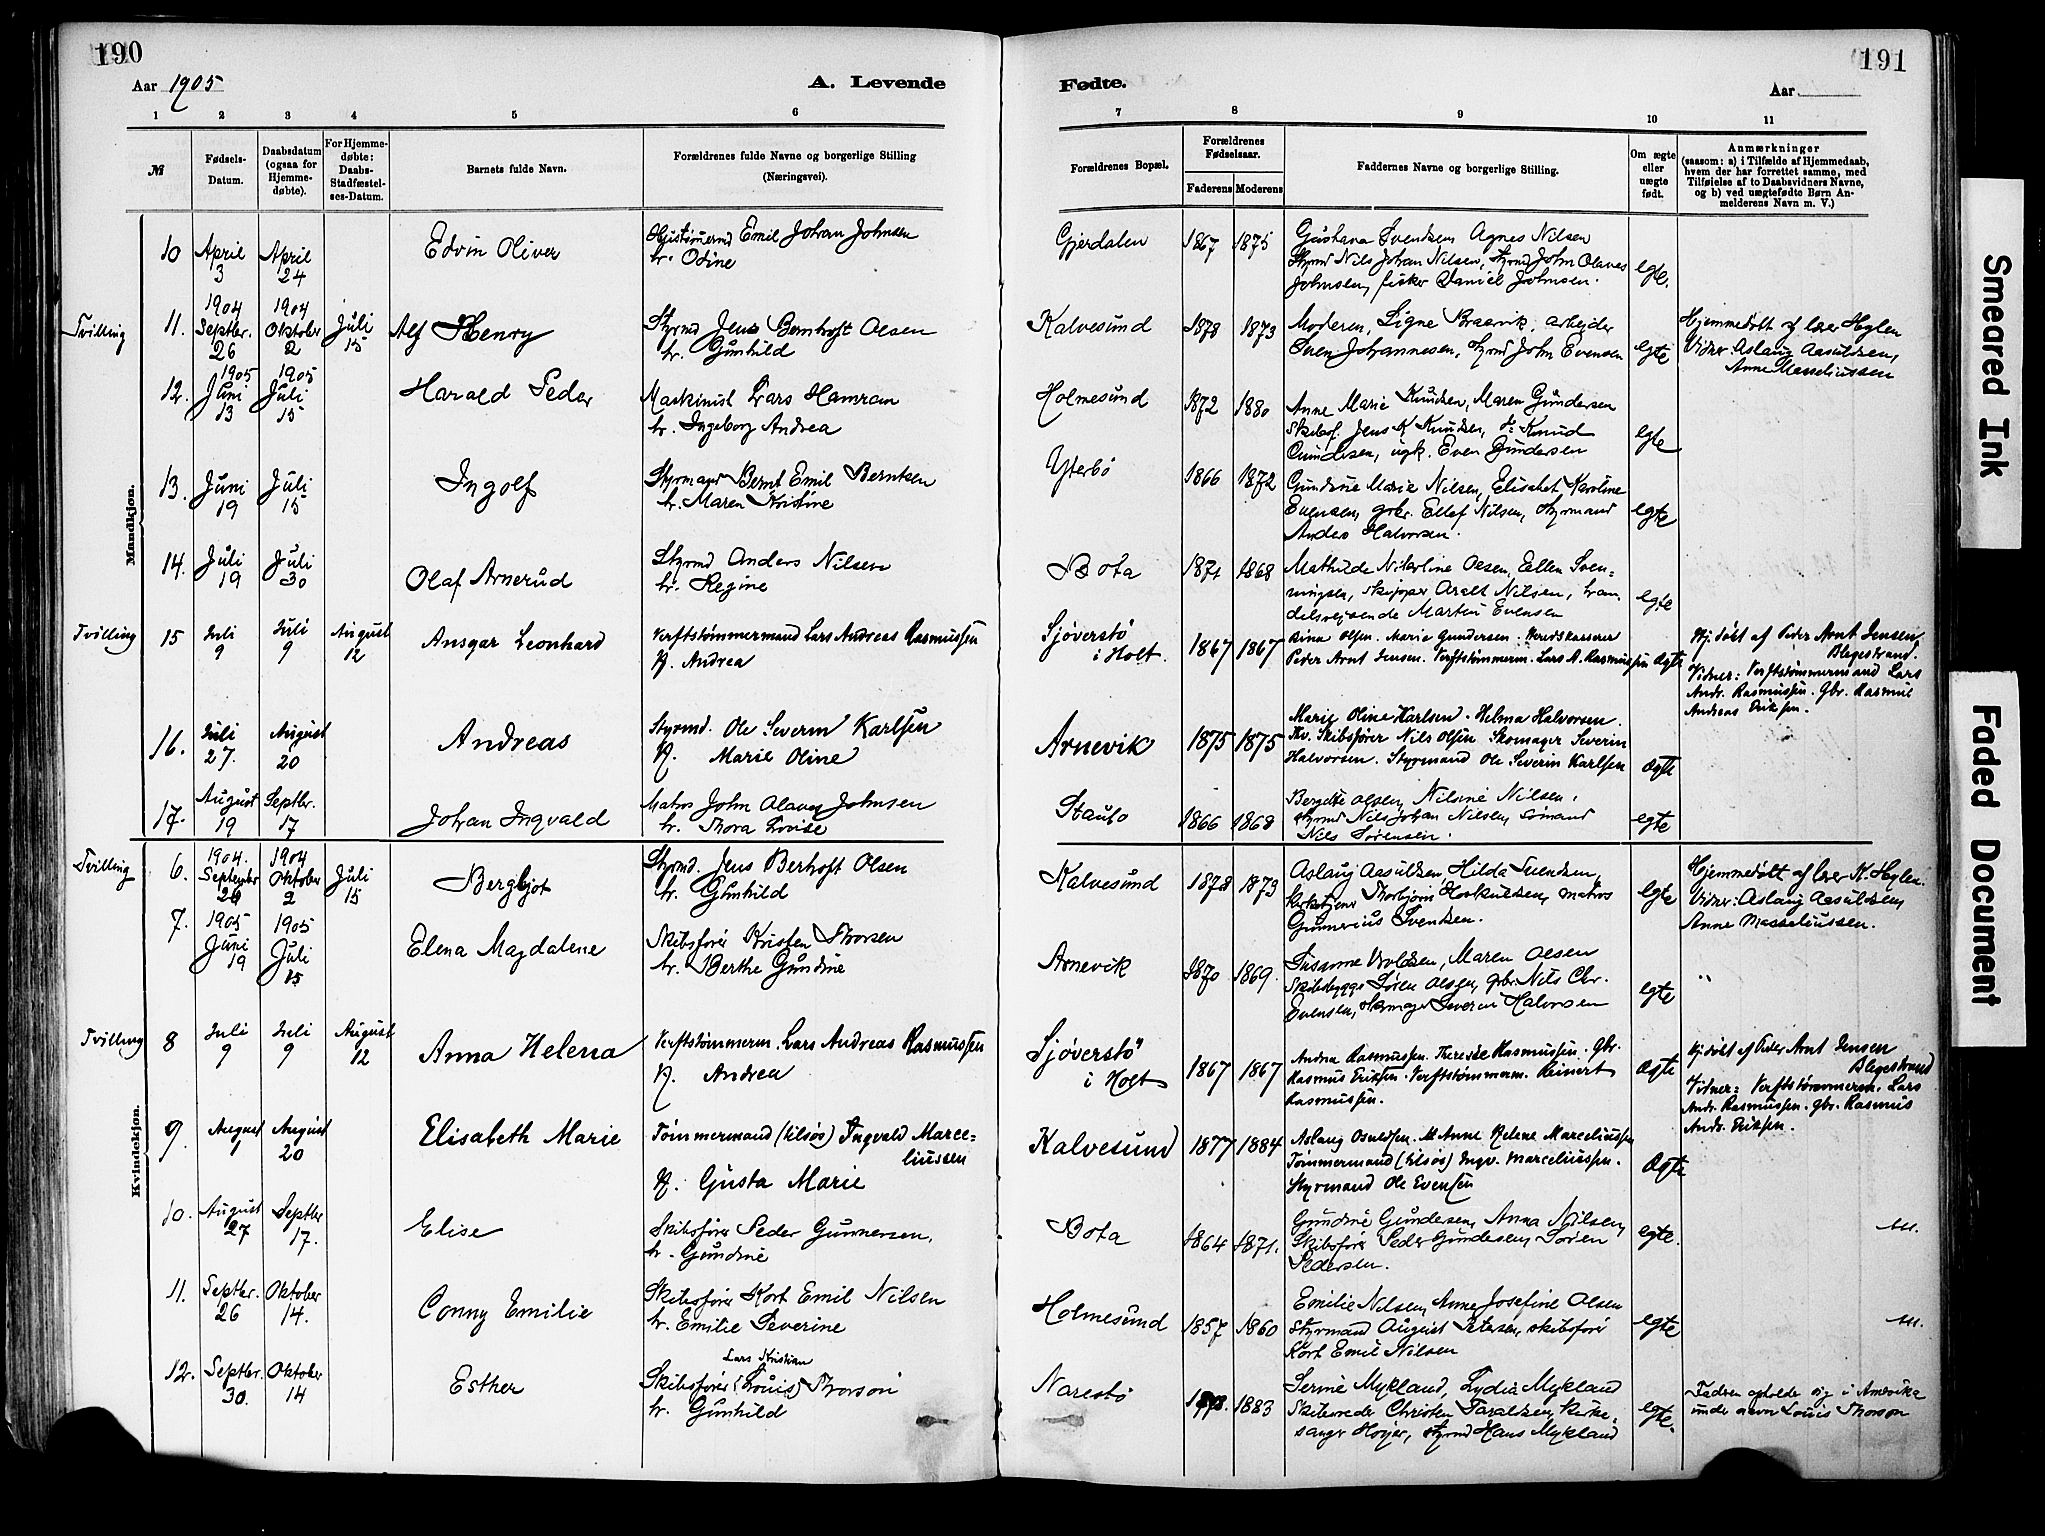 190
Aar 1905
A. Levende
1 2 3 4 5 6
№
Fødsels-Datum.
Daabsdatum (ogsaa for Hjemmedøbte).
For Hjemmedøbte: Daabs-Stadfæstelses-Datum.
Barnets fulde Navn.
Forældrenes fulde Navne og borgerlige Stilling
(Næringsvei).
Mandkjøn.
10 April 3 April 24 Edvin Oliver Emil Johan Johnsen
h. Odine
Tvilling 11. 1904 Septbr. 26 1904 Oktober 2 Juli 15 Alf Henry Styrmd Jens Bernhoft Olsen
h. Gunhild
12. 1905 Juni 13 1905 Juli 15 Harald Peder Maskinist Lars Hamran
h. Ingeborg Andrea
13. Juni 19 Juli 15 Ingolf Styrmand Bernt Emil Berntsen
h. Maren Kristine
14. Juli 19 Juli 30 Olaf Arnerud Styrmd Anders Nilsen
h. Regine
Tvilling 15 Juli 9 Juli 9 August 12 Ansgar Leonhard Verftstømmermand Lars Andreas Rasmussen
H. Andrea
16. Juli 27. August 20 Andreas Styrmd. Ole Severin Karlsen
H. Marie Oline
17. August 19 Septbr. 17 Johan Ingvald Matros John Olaves Johnsen
h. Thora Lovise
Kvindekjøn.
Tvilling 6. 1904. September 26 1904 Oktober 2 Juli 15 Bergljot Styrmd. Jens Bernhoft Olsen
h. Gunhild
7. 1905 Juni 19 1905 Juli 15 Elena Magdalene Skibsfører Kristen Thorsen
h. Berthe Gundine
Tvilling 8 Juli 9 Juli 9 August 12 Anna Helena Verftstømmerm. Lars Andreas Rasmussen
H. Andrea
9. August 1 August 20 Elisabeth Marie Tømmermand (tilsøs) Ingvald Marce=
liussen
H. Gusta Marie
10. August 27 Septbr 17. Elise Skibsfører Peder Gunnersen,
h. Gundine
11. Septbr. 26 Oktober 14. Conny Emilie Skibsfører Kort Emil Nilsen
h. Emilie Severine
12. Septbr. 30. Oktober 14 Esther Lars Kristian
Skibsfører (Louis) Thorson
h. Gunhild
191
Fødte.
Aar
7 8 9 10 11
Forældrenes Bopæl.
Forældrenes Fødselsaar.
Faderens Moderens
Faddernes Navne og borgerlige Stilling.
Om ægte eller uægte født.
Anmærkninger
(saasom: a) i Tilfælde af Hjemmedaab,
hvem der har forrettet samme, med
Tilføielse af to Daabsvidners Navne,
og b) ved uægtefødte Børn Anmelderens Navn m. V.)
Gjerdalen 1867 1875 Gustava Svendsen, Agnes Nilsen
Styrmd Nils Johan Nilsen, Styrmd John Olaves
Johnsen, fisker Daniel Johnsen. egte.
Kalvesund 1878 1873 Moderen, Signe Braarvik, arbejder
Sven Johannesen, styrmd John Evensen egte
Hjemmedøbt af lærer Hylen
Vidner: Aslaug Aasuldsen,
Anne Masseliussen
Holmesund 1872 1880 Anne Marie Knudsen, Maren Gundersen
Skibsf. Jens K Knudsen, Knud
Gundersen, ugk. Even Gundersen egte
Ytterbø 1866 1872 Gundine Marie Nilsen, Elisabet Karoline
Evensen, grbr. Ellef Nilsen, styrmand
Anders Halvorsen. egte
Bota 1871 1868 Mathilde Nikoline Olsen, Ellen Sven=
ningsen, skipper Aralt Nilsen, han
delsrejsende Martin Evensen egte
Sjøverstø i Holt. 1867 1867 Olsen. Marie Gundersen. Herredskasserer
Peder Arnt Jensen. Verftstømmerm. Lars A. Rasmussen Ægte
Hj. døbt af Peder Arnt Jensen
Blegestrand.
Vidner: Verftstømmermand Lars
Andr. Rasmussen. Gbr. Rasmus
Andreas Eriksen.
Arnevik 1875 1875 Marie Oline Karlsen. Helma Halvorsen.
Fhv. Skibsfører Nils Olsen Skomager Severin
Halvorsen. Styrmand Ole Severin Karlsen Ægte
Staubo 1866 1868 Bergitte Olsen, Nilsine Nilsen,
styrmd Nils Johan Nilsen, sømand
Nils Sørensen. egte
Kalvesund 1878 1873 Aslaug Aasuldsen, Hilda Svendsen,
kirketjener Thorbjørn Hoskuldsen, matros
Gunnerius Svendsen. egte
Hjemmedøbt af lærer N. Hylen.
Vidner: Aslaug Aasuldsen,
Anne Masseliussen.
Arnevik 1870 1869. Susanne Woldsen, Maren Olsen
Skibsbygger Søren Olsen, grbr. Nils Chr.
Evensen, skomager Severin Halvorsen egte
Sjøverstø i Holt 1867 1867 Andrea Rasmussen. Therese Rasmussen. Gbr.
Rasmus Eriksen. Verftstømmerm. Reinert
Rasmussen. Ægte
Hj. døbt af Peder Arnt Jensen
Blegestrand
Vidner: Verftstømmerm. Lars
Andr. Rasmussen. gbr. Rasmus
Andr. Eriksen.
Kalvesund 1877 1884 Aslaug Osuldsen. Anne Helene Marceliussen
Tømmermand (tilsøs) Ingv. Marceliussen.
Styrmand Ole Evensen Ægte
Bota 1864 1871. Gundine Gundersen, Anna Nilsen,
Skibsfører Peder Gundersen, Søren
Pedersen. egte.
Holmesund 1857 1860 Emilie Nilsen, Anne Josefine Olsen
Styrmand August Petersen, skibsfører
Kort Emil Nilsen egte
Narestø 1883 Serine Mykland, Lydia Mykland
Skibsreder Christen Taraldsen, Kirke=
sanger Høyer, styrmd Hans Mykland egte.
Fadren opholder sig i Amerika
under navn Louis Thorson
Smeared Ink
Faded Document